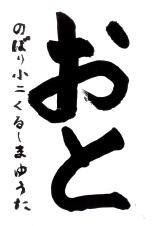 おと
のぼり小二くるしまゆうた